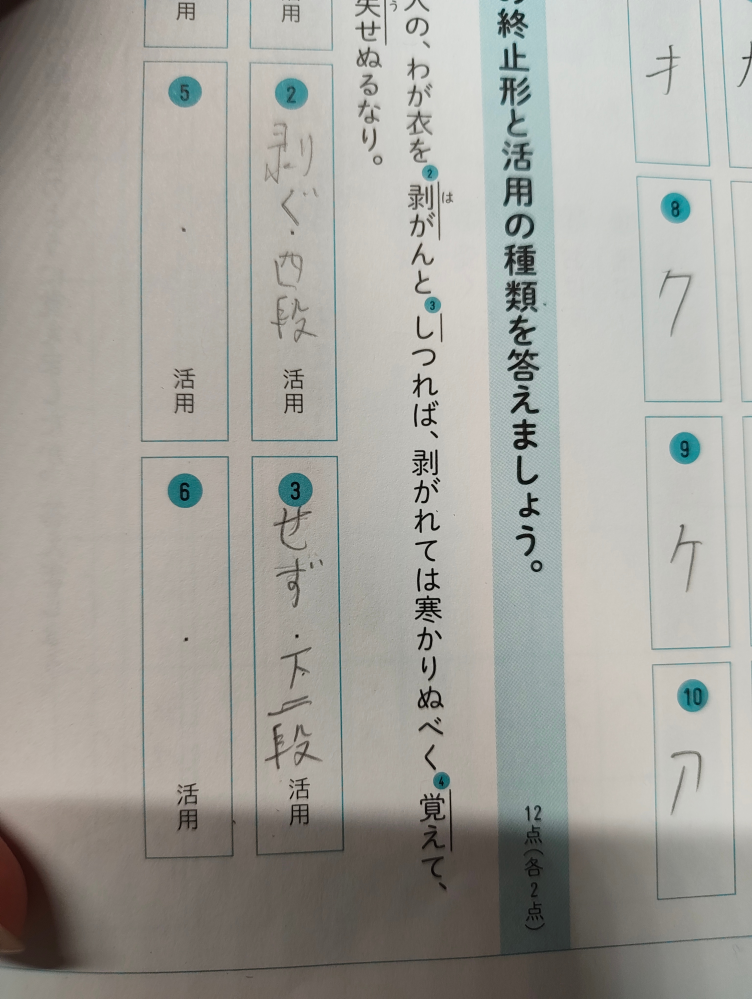 キ
8
ク
9
ケ
10
ア
終止形と活用の種類を答えましょう。
12点(各2点)
の、わが衣を2剥がんと3しつれば、剥がれては寒かりぬべく4覚えて、
は
失せぬるなり。
う
用
2
剥ぐ・四段
活用
3
せず・下二段
活用
用
5
・
活用
6
・
活用